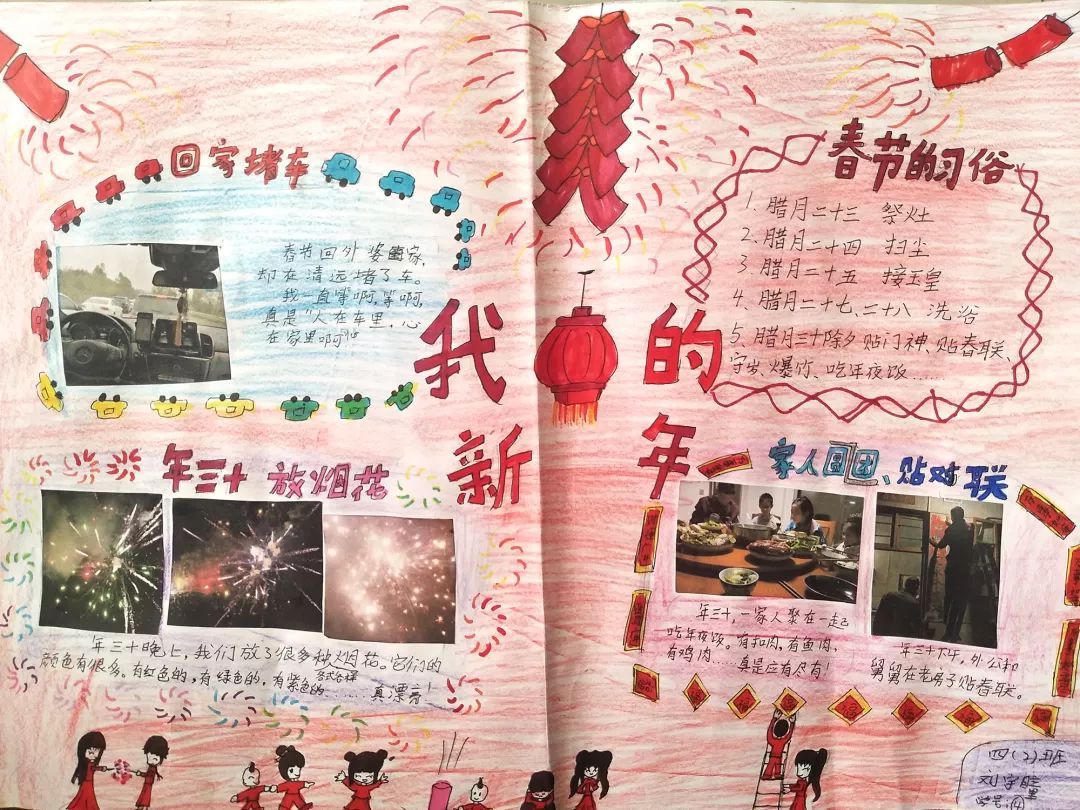 回家堵车
春节回外婆家,
却在清远堵了车。
我一直等啊,等啊,
真是“人在车里,心
在家里啊!”
春节的习俗
1、腊月二十三 祭灶
2、腊月二十四 扫尘
3、腊月二十五 接玉皇
4、腊月二十七、二十八 洗浴
5、腊月三十除夕贴门神、贴春联、
守岁、爆竹、吃年夜饭……
我的
新年
年三十 放烟花
年三十晚上,我们放了很多种烟花。它们的
颜色有很多。有红色的,有绿色的,有紫色的各式各样……真漂亮!
家人团团、贴对联
年三十,一家人聚在一起
吃年夜饭。有扣肉,有鱼肉,
有鸡肉……真是应有尽有!
年三十下午,外公和
舅舅在老房子贴春联。
四(2)班
刘宇
学号